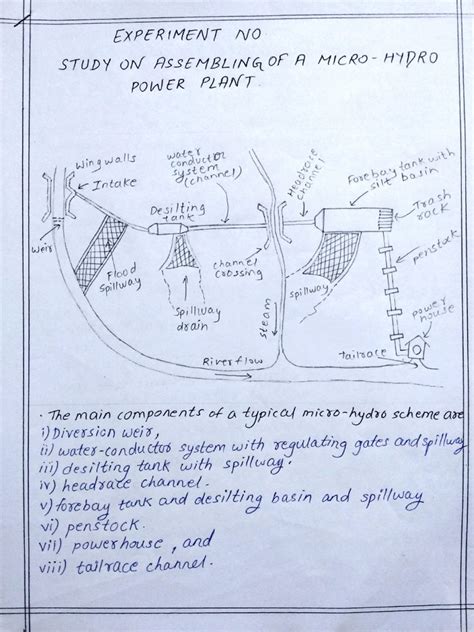 EXPERIMENT NO
STUDY ON ASSEMBLING OF A MICRO-HYDRO
POWER PLANT.
Wingwalls
Intake
water
conductor
system
(channel)
Headrace
channel
Forebay tank with
silt basin
Desilting
tank
Trash
rack
penstock
Weir
Flood
spillway
channel
crossing
Spillway
drain
spillway
steam
power
house
Riverflow
tailrace
· The main components of a typical micro-hydro scheme are
i) Diversion weir,
ii) water-conductor system with regulating gates and spillway
iii) desilting tank with spillway.
iv) headrace channel.
v) forebay tank and desilting basin and spillway
vi) penstock.
vii) powerhouse, and
viii) tailrace channel.